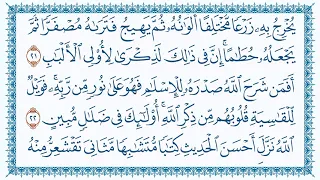 يُخْرِجُ بِهِۦ زَرْعًا مُّخْتَلِفًا أَلْوَٰنُهُۥ ثُمَّ يَهِيجُ فَتَرَىٰهُ مُصْفَرًّا ثُمَّ
يَجْعَلُهُۥ حُطَٰمًا ۚ إِنَّ فِى ذَٰلِكَ لَذِكْرَىٰ لِأُو۟لِى ٱلْأَلْبَٰبِ ٢١
أَفَمَن شَرَحَ ٱللَّهُ صَدْرَهُۥ لِلْإِسْلَٰمِ فَهُوَ عَلَىٰ نُورٍ مِّن رَّبِّهِۦ ۚ فَوَيْلٌ
لِّلْقَٰسِيَةِ قُلُوبُهُم مِّن ذِكْرِ ٱللَّهِ ۚ أُو۟لَٰٓئِكَ فِى ضَلَٰلٍ مُّبِينٍ ٢٢
ٱللَّهُ نَزَّلَ أَحْسَنَ ٱلْحَدِيثِ كِتَٰبًا مُّتَشَٰبِهًا مَّثَانِىَ تَقْشَعِرُّ مِنْهُ